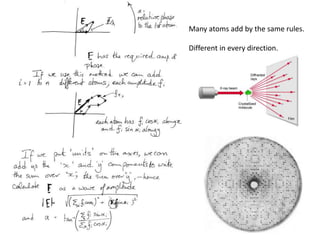 α:
relative phase
to the 1st atom.
E
E has the required amp &
phase
If we use this method we can add
i=1 to n different atoms, each amplitude fi
each atom has fi cos αi along x
and fi sin αi along y
If we put 'units' on the axes, we can
add up the 'x' and 'y' components to write
the sum over 'x', the sum over 'y', – hence
calculate E as a wave of amplitude
and α = tan⁻¹
Many atoms add by the same rules.
Different in every direction.
Diffracted
rays
X-ray beam
Crystallized
molecule
Film